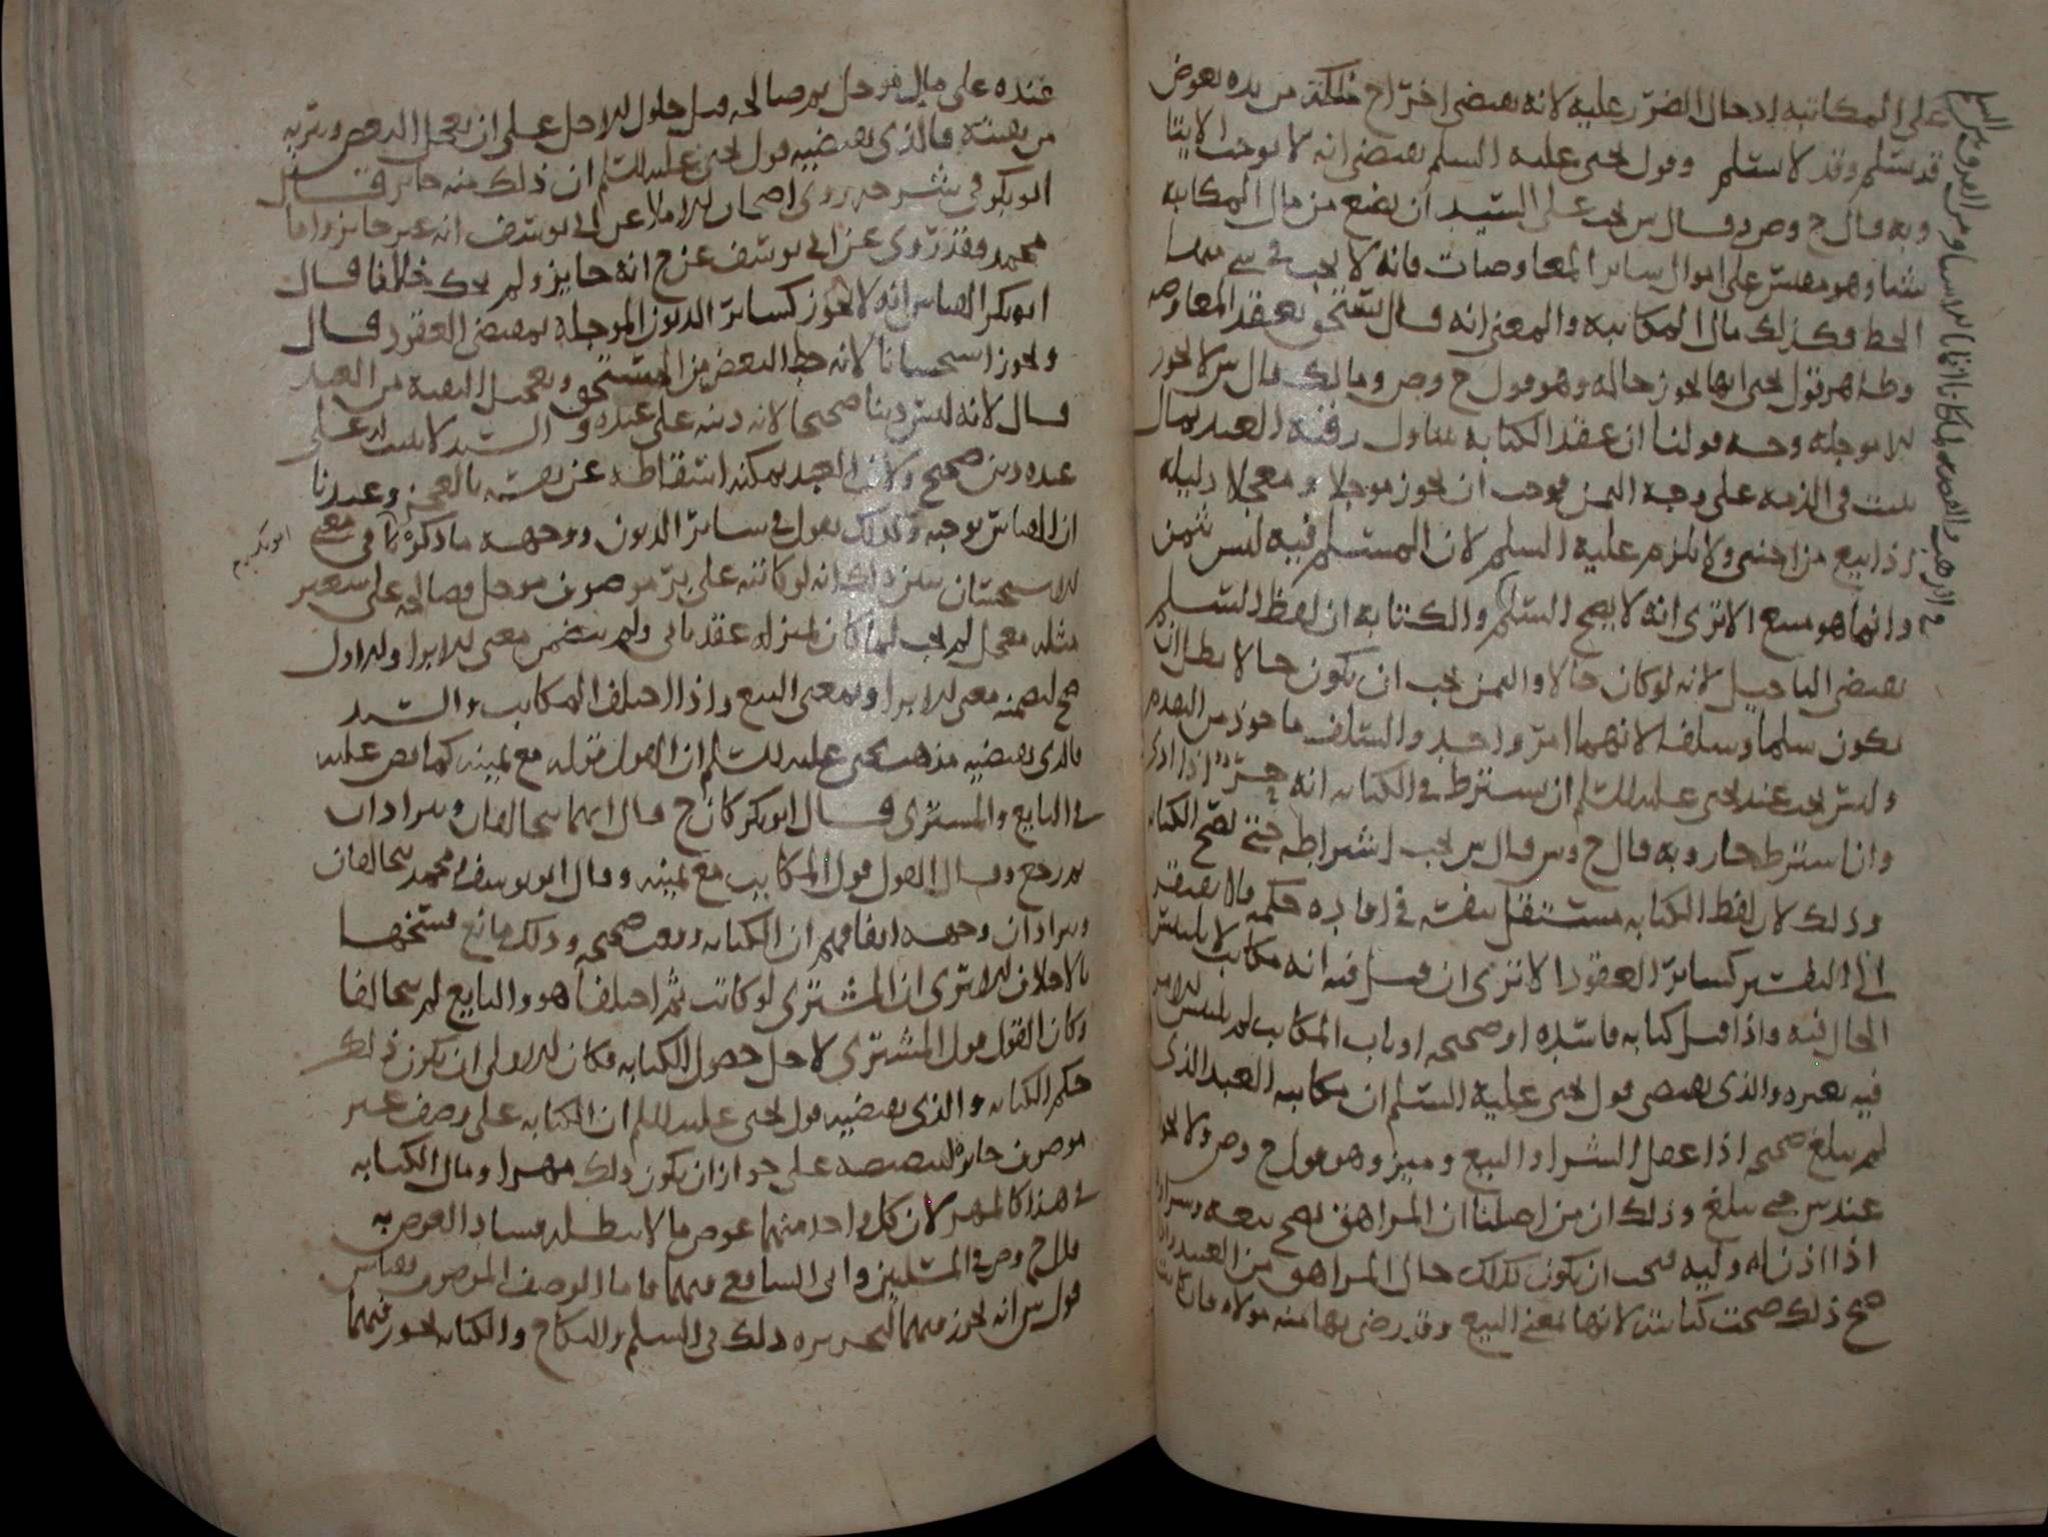 على المكاتبه ادخال الضرر عليه لانه يقتضي اخراج ملكه من يده بعوض
قد يسلم وقد لا يسلم وقول يحيى عليه السلم يقتضي انه لا يوجب الايتا
وبه قال ح وص وقال س يجب على السيد ان يضع من مال المكاتبه
شيا وهو مقيس على اموال ساير المعاوضات فانه لا يجب في شي منها
الحط فكذلك مال المكاتبه والمعنى انه مال يستحق بعقد المعاوضه
وظاهر قول يحيى انها تجوز حاله وهو قول ح وص ومالك قال س لا تجوز
الا موجله وجه قولنا ان عقد الكتابه يتناول رقبه العبد بمال
يثبت في الذمه على وجه الثمن فوجب ان يجوز موجلا ومعجلا دليله
اذا بيع من اجنبي ولا يلزم عليه السلم لان المسلم فيه ليس بثمن
وانما هو مبيع الا ترى انه لا يصح السلم والكتابه ان لفظ السلم
يقتضي التاجيل لانه لو كان حالا والثمن يجب ان يكون حالا بطل ان
يكون سلما وسلفا لانهما امر واحد والسلف ماخوذ من التقدم
وليس يجب عند يحيى عليه السلم ان يشترط في الكتابه انه حر اذا ادى
وان اشترط جاز وبه قال ح وس قال س يجب اشتراطه حتى تصح الكتابه
وذلك لان لفظ الكتابه مستقل بنفسه في افاده حكمه فلا يفتقر
الى التفسير كساير العقود الا ترى ان قيل فيه انه مكاتب لا يلتبس
الحال فيه واذا قيل كتابه فاسده او صحيحه او باب المكاتب لم يلتبس الامر
فيه بغيره والذي يقتضي قول يحيى عليه السلم ان مكاتبه العبد الذي
لم يبلغ صحيحه اذا عقل الشرا والبيع وميز وهو قول ح وص ولا يجوز
عند س حتى يبلغ وذلك ان من اصلنا ان المراهق يصح بيعه وشراوه
اذا اذن له وليه فيجب ان يكون كذلك حال المراهق من العبيد واذا
صح ذلك صحت كتابته لانها بمعنى البيع وقد رضي بها منه مولاه فان كاتب
عبده على مال موجل ثم صالحه قبل حلول الاجل على ان يعجل البعض ويبريه
من بقيته فالذي يقتضيه قول يحيى عليه السلم ان ذلك منه جايز قال
ابو بكر في شرحه روى اصحاب الاملا عن ابي يوسف انه غير جايز واما
محمد فقد روى عن ابي يوسف عن ح انه جايز ولم يحك خلافا قال
ابو بكر القياس انه لا يجوز كساير الديون الموجله بمقتضى العقود قال
ويجوز استحسانا لانه حط البعض من المستحق وتعجيل البقيه من العبد
قال لانه ليس دينا صحيحا لانه دينه على عبده والسيد لا يثبت له على
عبده دين صحيح ولان العبد يمكنه اسقاطه عن نفسه بالعجز وعندنا
ان القياس يوجبه وكذلك يقول في ساير الديون ووجهه ما ذكرناه في معنى
الاستحسان يبين ذلك انه لو كاتبه على بر موصوف موجل فصالحه على شعير
مثله معجل لم يجب لما كان بمنزله عقد ثاني ولم يتضمن معنى الابرا والاول
صح لتضمنه معنى الابرا وبمعنى البيع واذا اختلف المكاتب والسيد
فالذي يقتضيه مذهب يحيى عليه السلم ان القول قوله مع يمينه كما نص عليه
في البايع والمشتري قال ابو بكر كان ح قال انهما يتحالفان ويترادان
ثم رجع وقال القول قول المكاتب مع يمينه وقال ابو يوسف ومحمد يتحالفان
ويترادان وجهه اتفاقهم ان الكتابه وقعت صحيحه وذلك مانع فسخها
بالاختلاف الا ترى ان المشتري لو كاتب ثم اختلفا هو والبايع لم يتحالفا
وكان القول قول المشتري لاجل حصول الكتابه فكان الاولى ان يكون ذلك
حكم الكتابه والذي يقتضيه قول يحيى عليه السلم ان الكتابه على وصف غير
موصوف جايزه لنصه على جواز ان يكون ذلك مهرا ومال الكتابه
في هذا كالمهر لان كل واحد منهما عوض ما لا يبطله فساد العوض به
قال ح وص في المسلمين وابى الشافعي فيهما فاما الوصف الموصوف فقياس
قول س انه يجوز فيهما لتجويزه ذلك في السلم والنكاح والكتابه تجوز فيهما